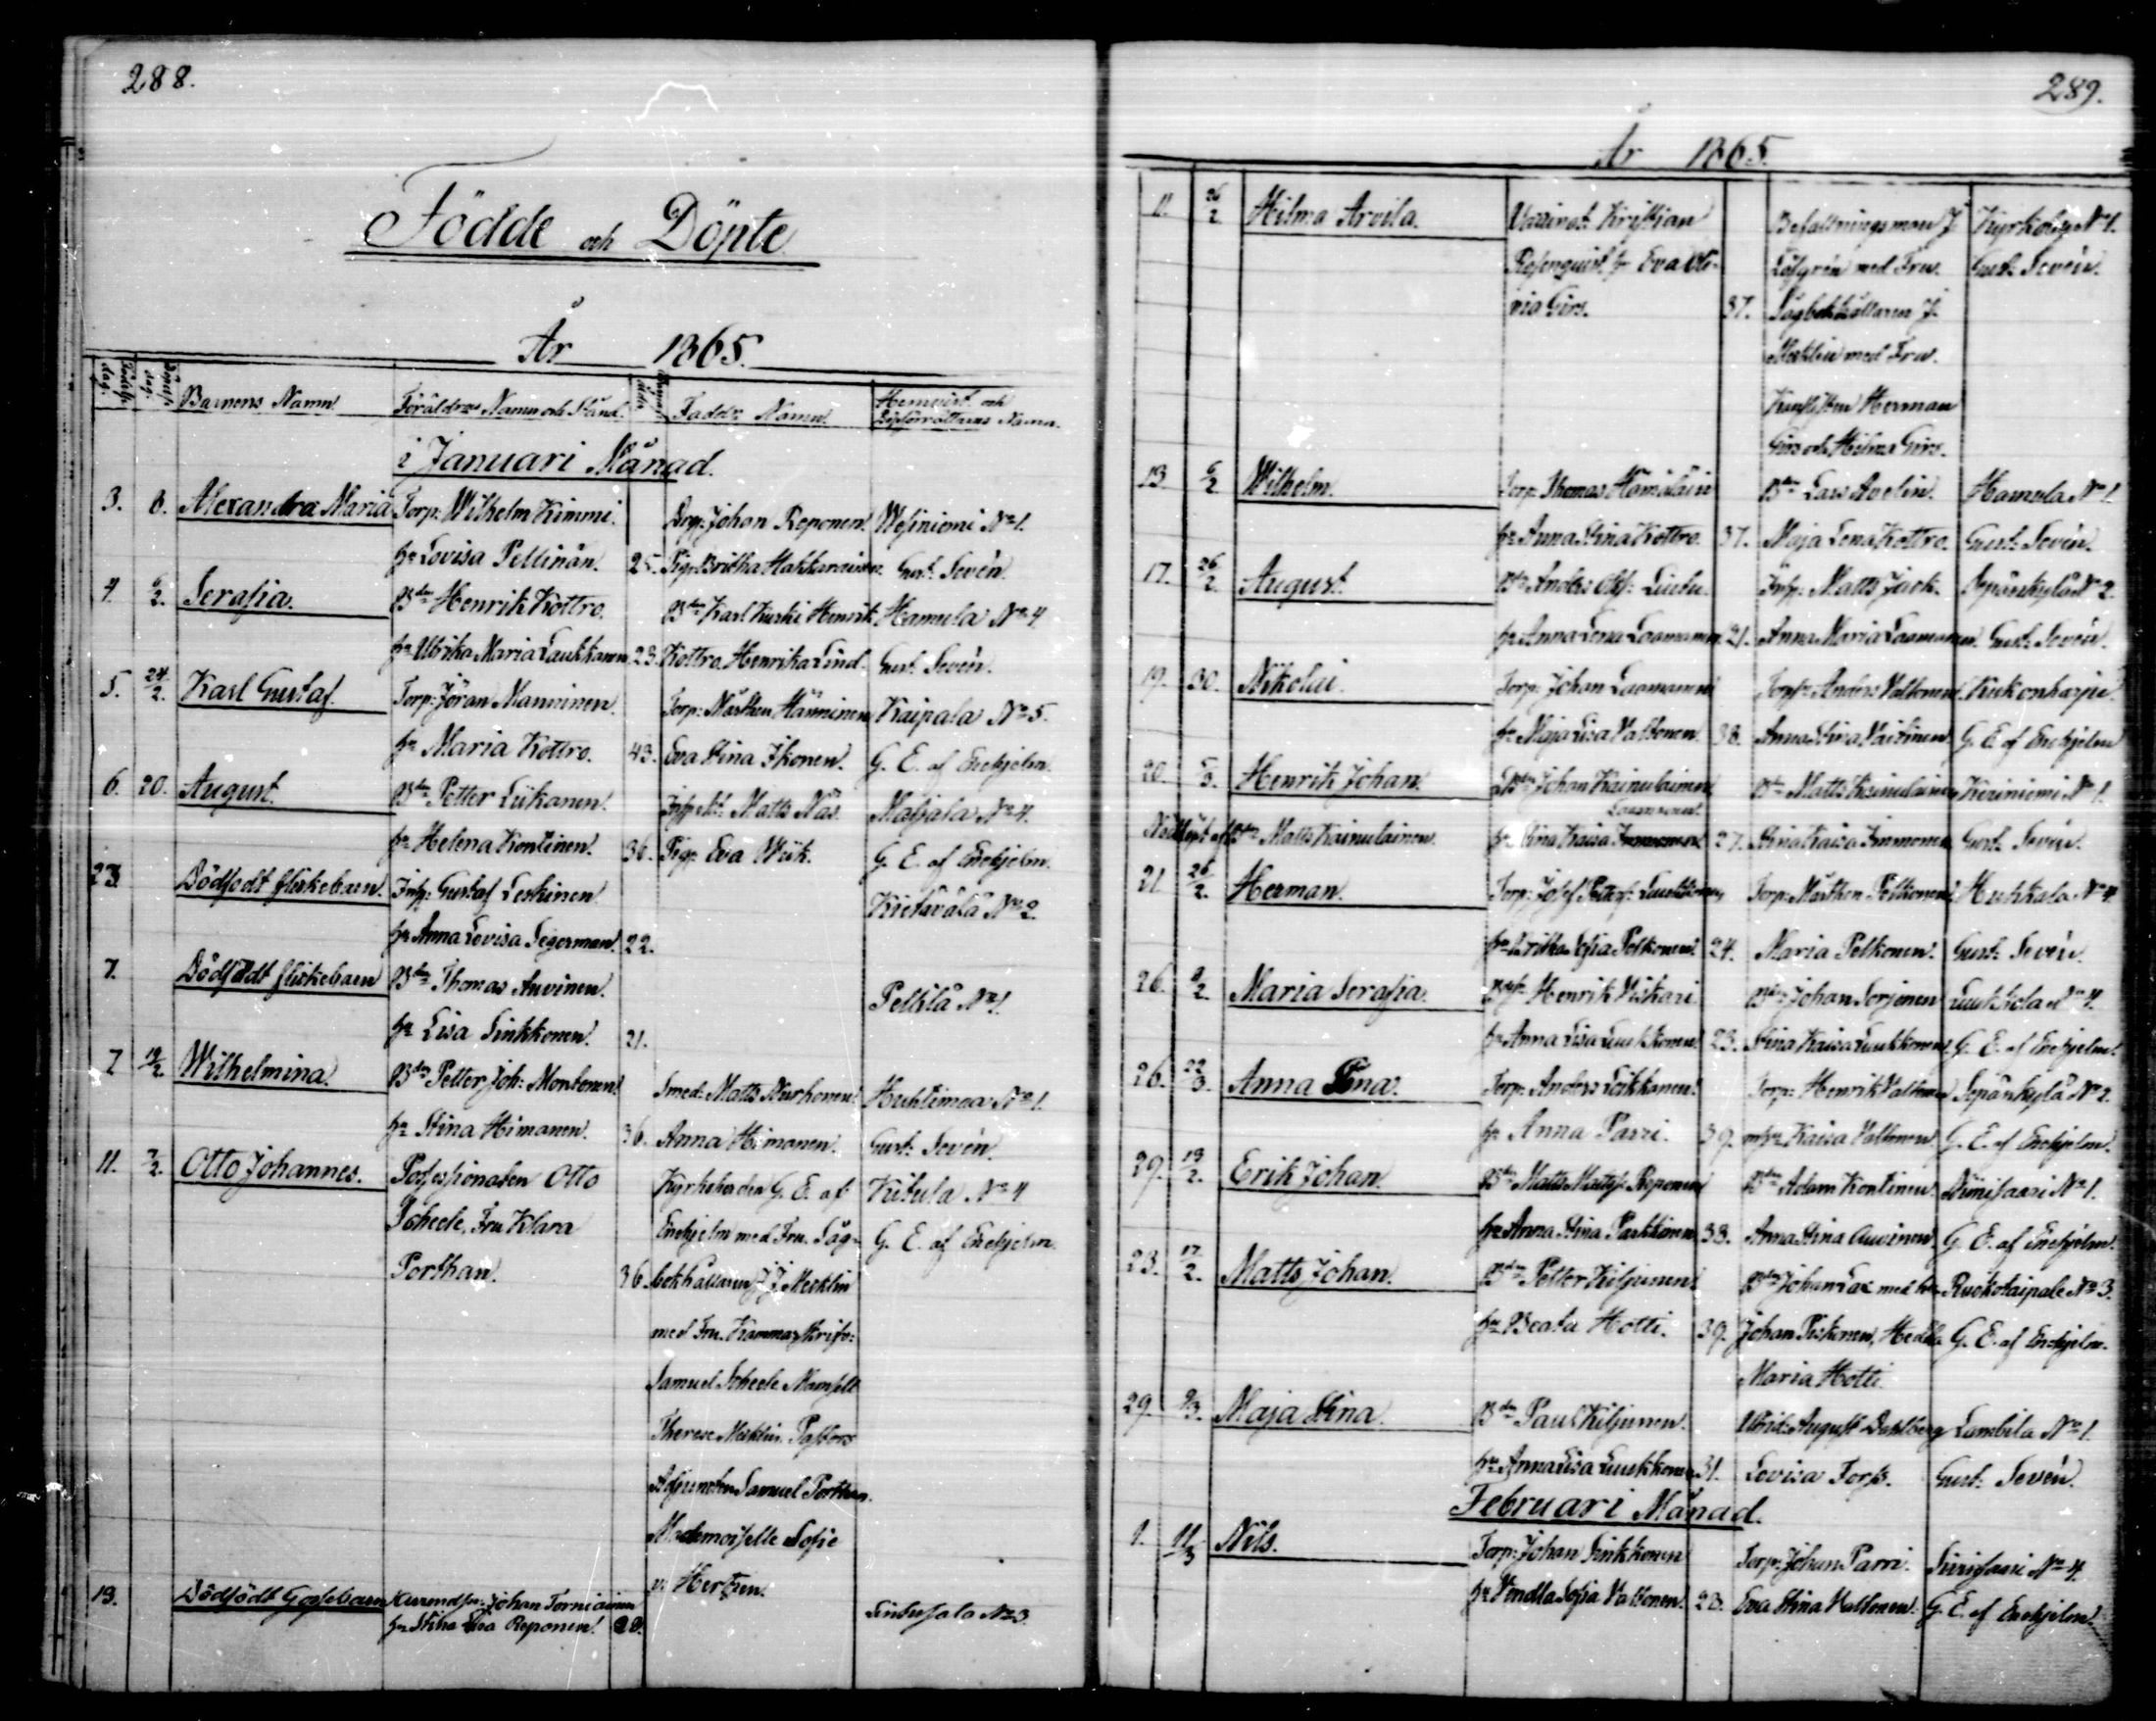 288.
Födde och Döpte
År 1865.
Barnens Namn. Föräldrars Namn och Stånd. Faddr: Namn. Hemvist och Dopförrättarens Namn.
i Januari Månad.
3. 8. Alexandra Maria Torp: Wilhelm Kimmi. Drg: Johan Reponen. Wesiniemi No 1.
hu Lovisa Pellinän. 25. Pig: Britha Hakkarainen Gust: Sevén.
4. 6/2. Serafia. Bdn Henrik Kottro. Bdn Karl Kurki Henrik Hamula No 4
hu Ulrika Maria Laukkanen 23. Kottro Henrika Lind. Gust: Sevén.
5. 24/2. Karl Gustaf. Torp: Jöran Manninen. Torp: Mårthen Hänninen Kaipala No 5.
hu Maria Kottro. 43. Eva Stina Ikonen. G. E. af Enehjelm.
6. 20. August. Bdn Petter Liikanen. Matts Näs. No 4.
hu Helena Kontinen. 36. Pig: Eva G. E. af Enehjelm.
23. Dödfödt flickebarn. Inh: Gustaf Leskinen Kietävälä No 2.
hu Anna Lovisa Segerman. 22.
7. Dödfödt flickebarn Bdn Thomas Auvinen. Pellilä No 1.
hu Lisa Sinkkonen. 21.
7 19/2. Wilhelmina. Bdn Petter Joh: Montonen. Smed: Matts Nurhonen. Huhtimaa No 1.
hu Stina Himanen. 36. Anna Himanen. Gust: Sevén.
11. 7/2. Otto Johannes. Possessionaten Otto Kyrkoherden G. E. af Kitula No 4
Scheele, Fru Klara Enehjelm med Fru. Såg- G. E. af Enehjelm.
Porthan. 36. bokhållaren J. J. Mecklin
med Fru. Kammarskrifv:
Samuel Scheele Mamsell
Therese Mecklin. Pastors
Adjuncten Samuel Porthan.
Mademoiselle Sofie
v. Hertzen.
19. Dödfödt Gossebarn Johan Torniainen
hu Stina Reponen. 28. No 3.
289.
År 1865.
11. 26/2 Hilma Arvila. Vaccinat: Kristian Befallningsman J. Kyrkoby No 1.
Rosenquist, hu Eva Oli- Löfgrén med Fru. Gust: Sevén.
via Girs. 37. Sågbokhållaren J.
Mecklin med Fru.
Kanslisten Herman
Girs och Hilma Girs.
13 6/2 Wilhelm. Torp: Thomas Hämäläin Bdn Lars Avelin. Hamula No 1.
hu Anna Stina Kottro. 37. Maja Lena Kottro. Gust: Sevén.
17. 26/2 August. Bdn Anders Lintu. Inh: Matts Jack. Sepänkylä No 2.
hu Anna Lena Laamanen. 21. Anna Maria Laamanen. Gust: Sevén.
19. 30. Nikolai. Torp: Johan Laamanen Anders Valtonen Kukonharju.
hu Maja Lisa Valtonen. 38. Anna Stina G. E. af Enehjelm
20. 5/3. Henrik Johan. Bdn Johan Kainulainen Bdn Matts Kainulainen No 1.
Laamanen.
Nöddöpt af Bdn Matts Kainulainen. hu Stina Kaisa Immonen 27. Stina Kaisa Immonen Gust: Sevén.
21 26/2. Herman. Torp: Josef Luukkonen Torp: Mårthen Pelkonen Hukkala No 4
hu Britha Sofia Pelkonen. 24. Maria Pelkonen. Gust: Sevén.
26. 8/2. Maria Serafia. Henrik Viskari Bdn Johan Sorjonen Luukkola No 4.
hu Anna Lisa Luukkonen 23. Stina Kaisa Luukkonen. G. E. af Enehjelm.
26. 22/3. Anna Stina. Torp: Anders Loikkanen. Torp: Henrik Valtonen Sepänkylä No 2.
hu Anna Parri. 39. Kaisa Valtonen G. E. af Enehjelm.
29. 19/2. Erik Johan. Bdn Matts Matts: Reponen Bdn Adam Kontinen Niinisaari No 1.
hu Anna Stina Parkkinen 33. Anna Stina Auvinen G. E. af Enehjelm.
23. 17/2. Matts Johan. Bdn Petter Kiljunen. Bdn Johan Lax med hu Ruokotaipale No 3.
hu Beata Hotti. 39. Johan Piskonen, Hedda G. E. af Enehjelm.
Maria Hotti.
29. 9/3. Maja Stina. Bdn Paul Kiljunen. August Dahlberg Lambila No 1.
hu Anna Lisa Luukkonen 31. Lovisa Gust: Sevén.
Februari Månad.
1. 11/3 Nils. Torp: Johan Sinkkonen Torp: Johan Parri. Sirisaari No 4.
hu Vendla Sofia Valtonen. 23. Eva Stina Valtonen. G. E. af Enehjelm.